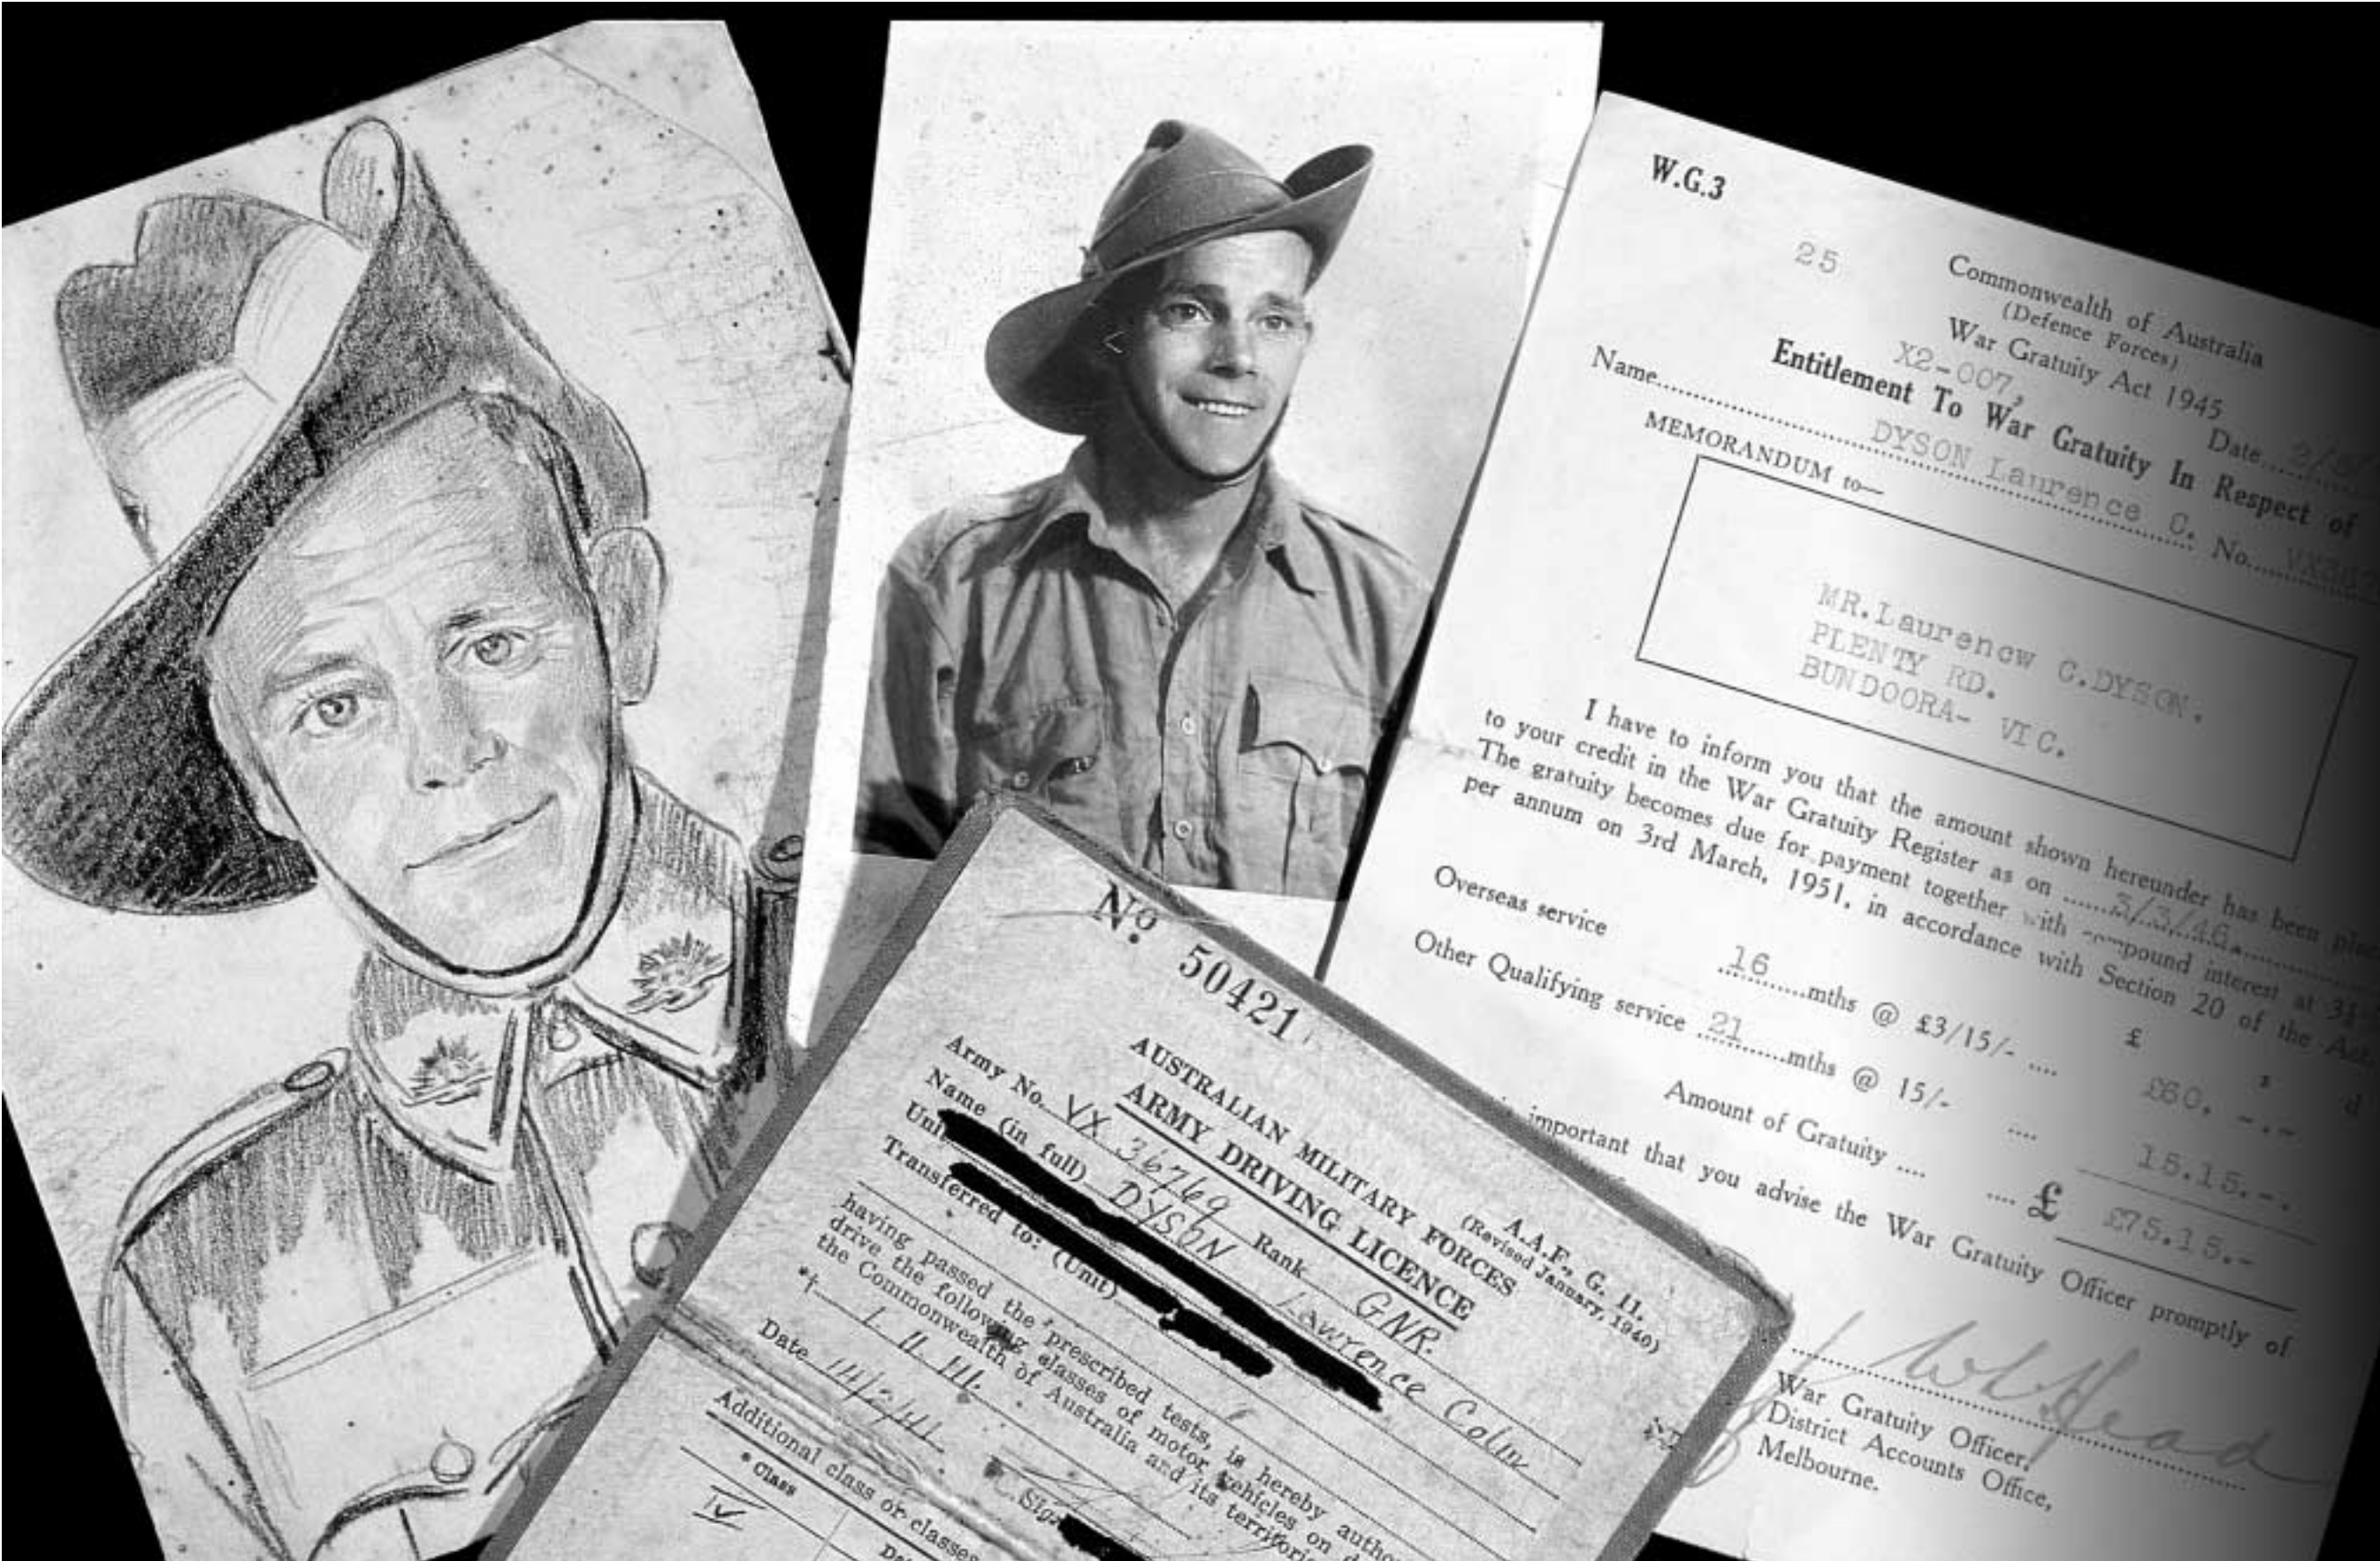 W.G.3
25
Commonwealth of Australia
(Defence Forces)
War Gratuity Act 1945
X2-007,
Date 2/5/
Entitlement To War Gratuity In Respect of
Name DYSON Laurence C. No.
MEMORANDUM to—
MR.Laurencw C.DYSON.
PLENTY RD.
BUNDOORA- VIC.
I have to inform you that the amount shown hereunder has been
to your credit in the War Gratuity Register as on 3/3/46.
The gratuity becomes due for payment together with compound interest at
per annum on 3rd March, 1951, in accordance with Section 20 of the Act
£ s d
Overseas service 16 mths @ £3/15/- .... £60. -.-
Other Qualifying service 21 mths @ 15/- .... 15.15.-.
Amount of Gratuity .... .... £ £75.15.-
important that you advise the War Gratuity Officer promptly of
War Gratuity Officer,
District Accounts Office,
Melbourne.
No. 50421
A.A.F., G. 11.
(Revised January, 1940)
AUSTRALIAN MILITARY FORCES
ARMY DRIVING LICENCE
Army No. VX 36769 Rank GNR.
Name (in full) DYSON Lawrence Colin
Unit
Transferred to: (Unit)
having passed the prescribed tests, is hereby
drive the following classes of motor vehicles on
the Commonwealth of Australia and its
*† I II III.
Date 14/2/41
Additional class or classes
* Class
IV